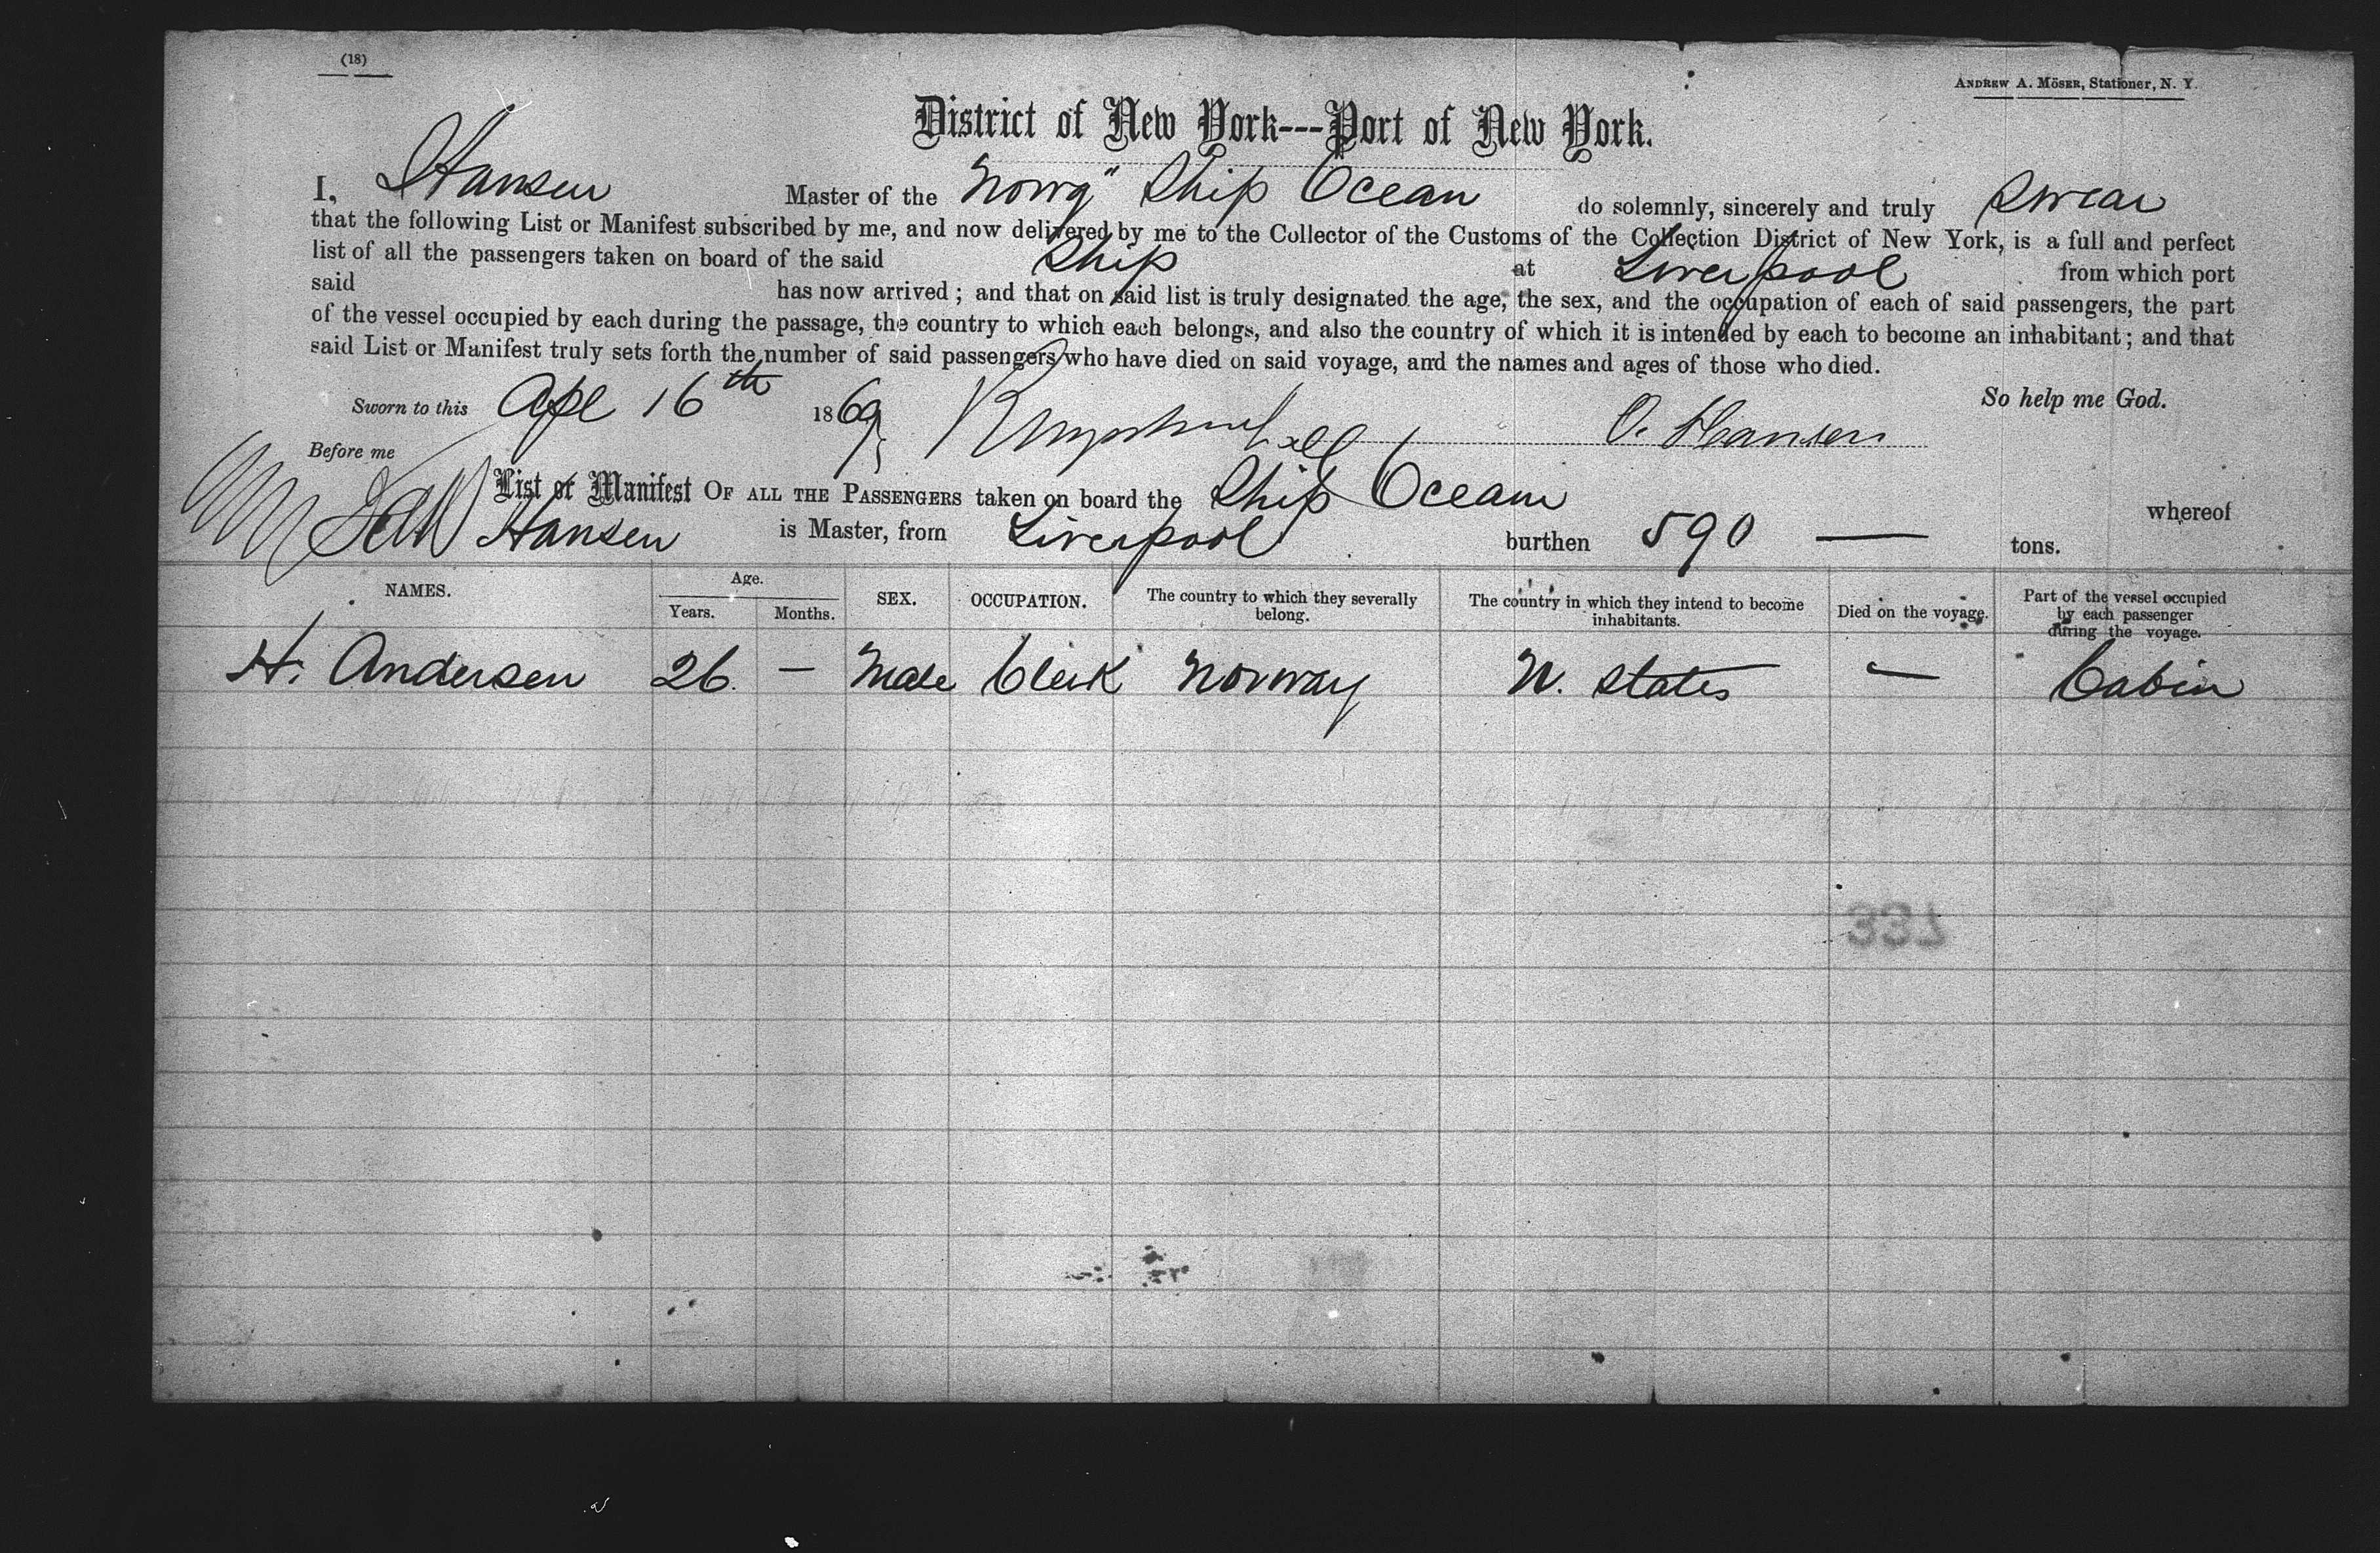 (18)
ANDREW A. MÖSER, Stationer, N. Y.
District of New York---Port of New York.
I, Hansen Master of the Norwg" Ship Ocean do solemnly, sincerely and truly swear
that the following List or Manifest subscribed by me, and now delivered by me to the Collector of the Customs of the Collection District of New York, is a full and perfect
list of all the passengers taken on board of the said Ship at Liverpool from which port
said has now arrived; and that on said list is truly designated the age, the sex, and the occupation of each of said passengers, the part
of the vessel occupied by each during the passage, the country to which each belongs, and also the country of which it is intended by each to become an inhabitant; and that
said List or Manifest truly sets forth the number of said passengers who have died on said voyage, and the names and ages of those who died.
So help me God.
Sworn to this Apl 16th 1869
O. Hansen
Before me
List or Manifest OF ALL THE PASSENGERS taken on board the Ship Ocean whereof
Hansen is Master, from Liverpool burthen 590 — tons.
NAMES. Age. Years. Months. SEX. OCCUPATION. The country to which they severally belong. The country in which they intend to become inhabitants. Died on the voyage. Part of the vessel occupied by each passenger during the voyage.
H. Andersen 26. — Male Clerk Norway U. States — Cabin
331